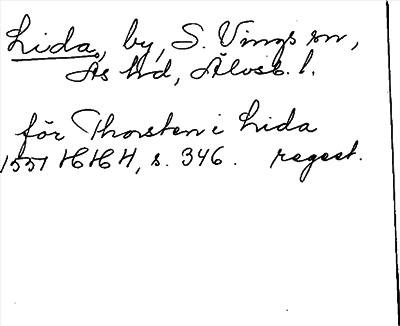 Lida, by, S. Vings sn,
Ås hd, Älvsb. l.
för Thorsten i Lida
1551 HHH, s. 346. regest.